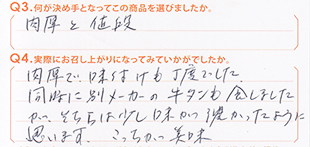 Q3.何が決め手となってこの商品を選びましたか。
肉厚と値段
Q4.実際にお召し上がりになってみていかがでしたか。
肉厚で味付けも丁度でした。
同時に別メーカーの牛タンも食しました
が、そちらは少し味が濃かったように
思います。こっちが美味